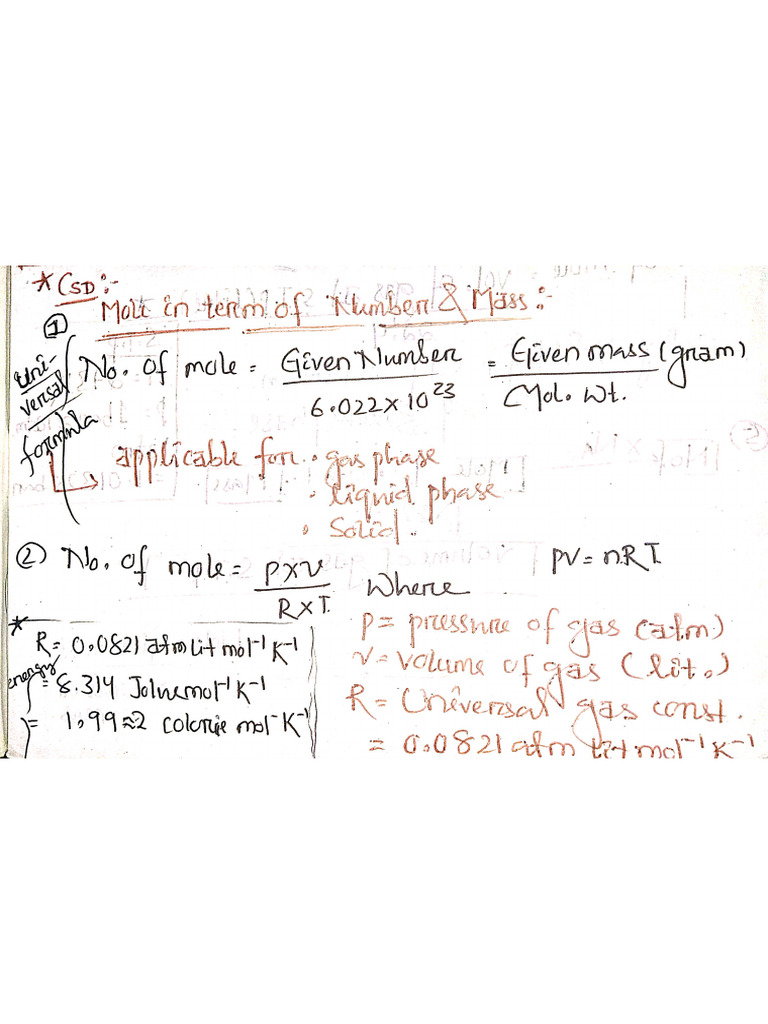 * CSD:-
Mole in term of Number & Mass:-
① No. of mole = Given Number / 6.022 x 10²³ = Given mass (gram) / Mol. Wt.
Uni-
versal
formula
applicable for • gas phase
• liquid phase
• Solid.
② No. of mole = P x V / R x T. Where PV = n.R.T.
P = pressure of gas (atm)
V = volume of gas (lit.)
R = Universal gas const.
= 0.0821 atm lit mol⁻¹ K⁻¹
*
R = 0.0821 atm lit mol⁻¹ K⁻¹
energy = 8.314 Joluemol⁻¹ K⁻¹
= 1.99 ≈ 2 Colorie mol⁻ K⁻¹